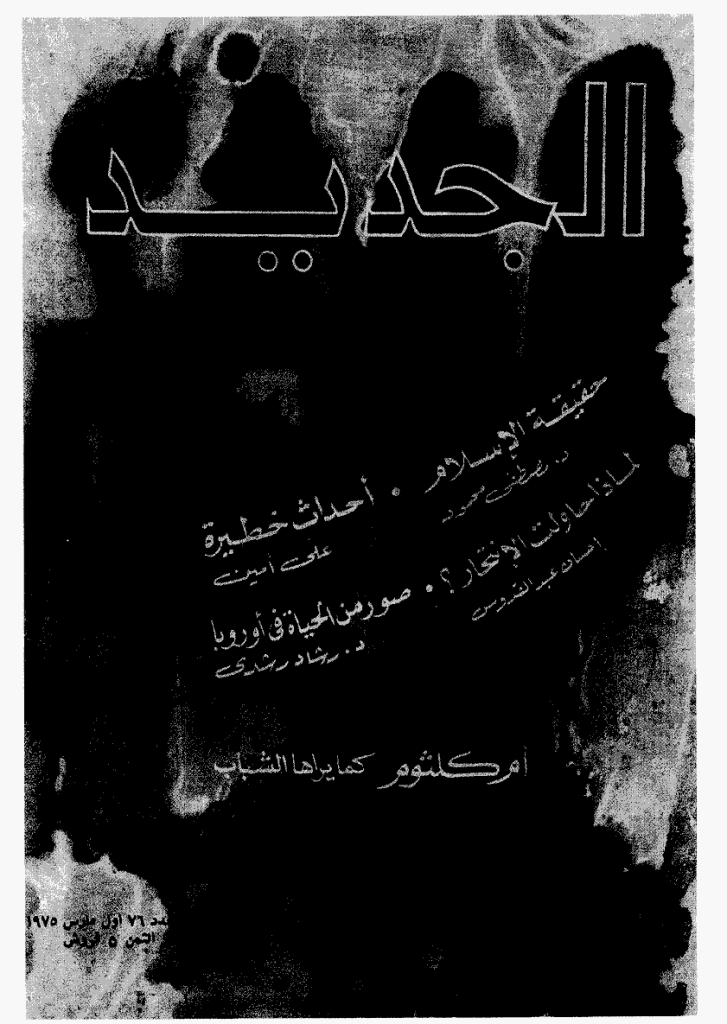 الجديد
حقيقة الإسلام • أحداث خطيرة
د. مصطفى محمود
على أمين
لماذا حاولت الانتحار؟ • صور من الحياة فى أوروبا
إحسان عبد القدوس
د. رشاد رشدى
أم كلثوم كما يراها الشباب
عدد ٧٦ أول مارس ١٩٧٥
الثمن ٥ قروش